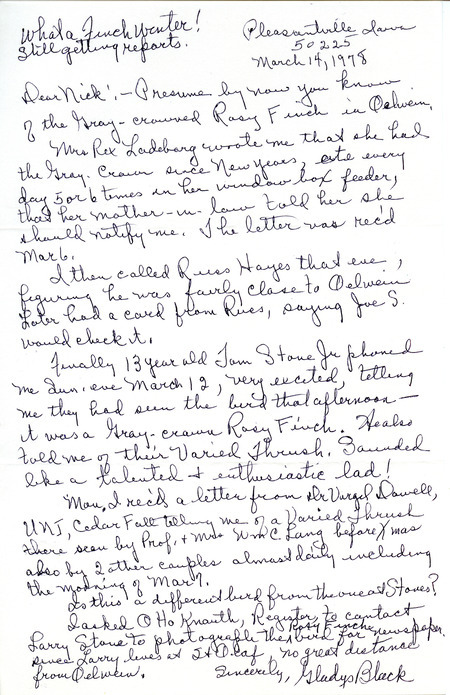 What a Finch Winter!
Still getting reports.
Pleasantville Iowa
50225
March 14, 1978
Dear Nick! — Presume by now you know
of the Gray-crowned Rosy Finch in Oelwein.
Mrs Rex Ladeburg wrote me that she had
the Gray-Crown since New Years, ate every
day 5 or 6 times in her window box feeder,
that her mother-in-law told her she
should notify me. The letter was rec'd
Mar 6.
I then called Russ Hayes that eve,
figuring he was fairly close to Oelwein
Later had a card from Russ, saying Joe S.
would check it.
Finally 13 year old Tom Stone Jr phoned
me Sun. eve March 12, very excited, telling
me they had seen the bird that afternoon —
it was a Gray-crown Rosy Finch. He also
told me of their Varied Thrush. Sounded
like a talented & enthusiastic lad!
Mon. I rec'd a letter from Dr Virgil Dowell,
UNI, Cedar Fall telling me of a Varied Thrush
there seen by Prof. & Mrs Wm C. Lang before Xmas
also by 2 other couples almost daily including
the morning of Mar 7.
Is this a different bird from the one at Stones?
I asked Otto Knauth, Register, to contact
Larry Stone to photograph the Rosy Finch bird for newspaper.
since Larry lives at Strawberry no great distance
from Oelwein.
Sincerely, Gladys Black